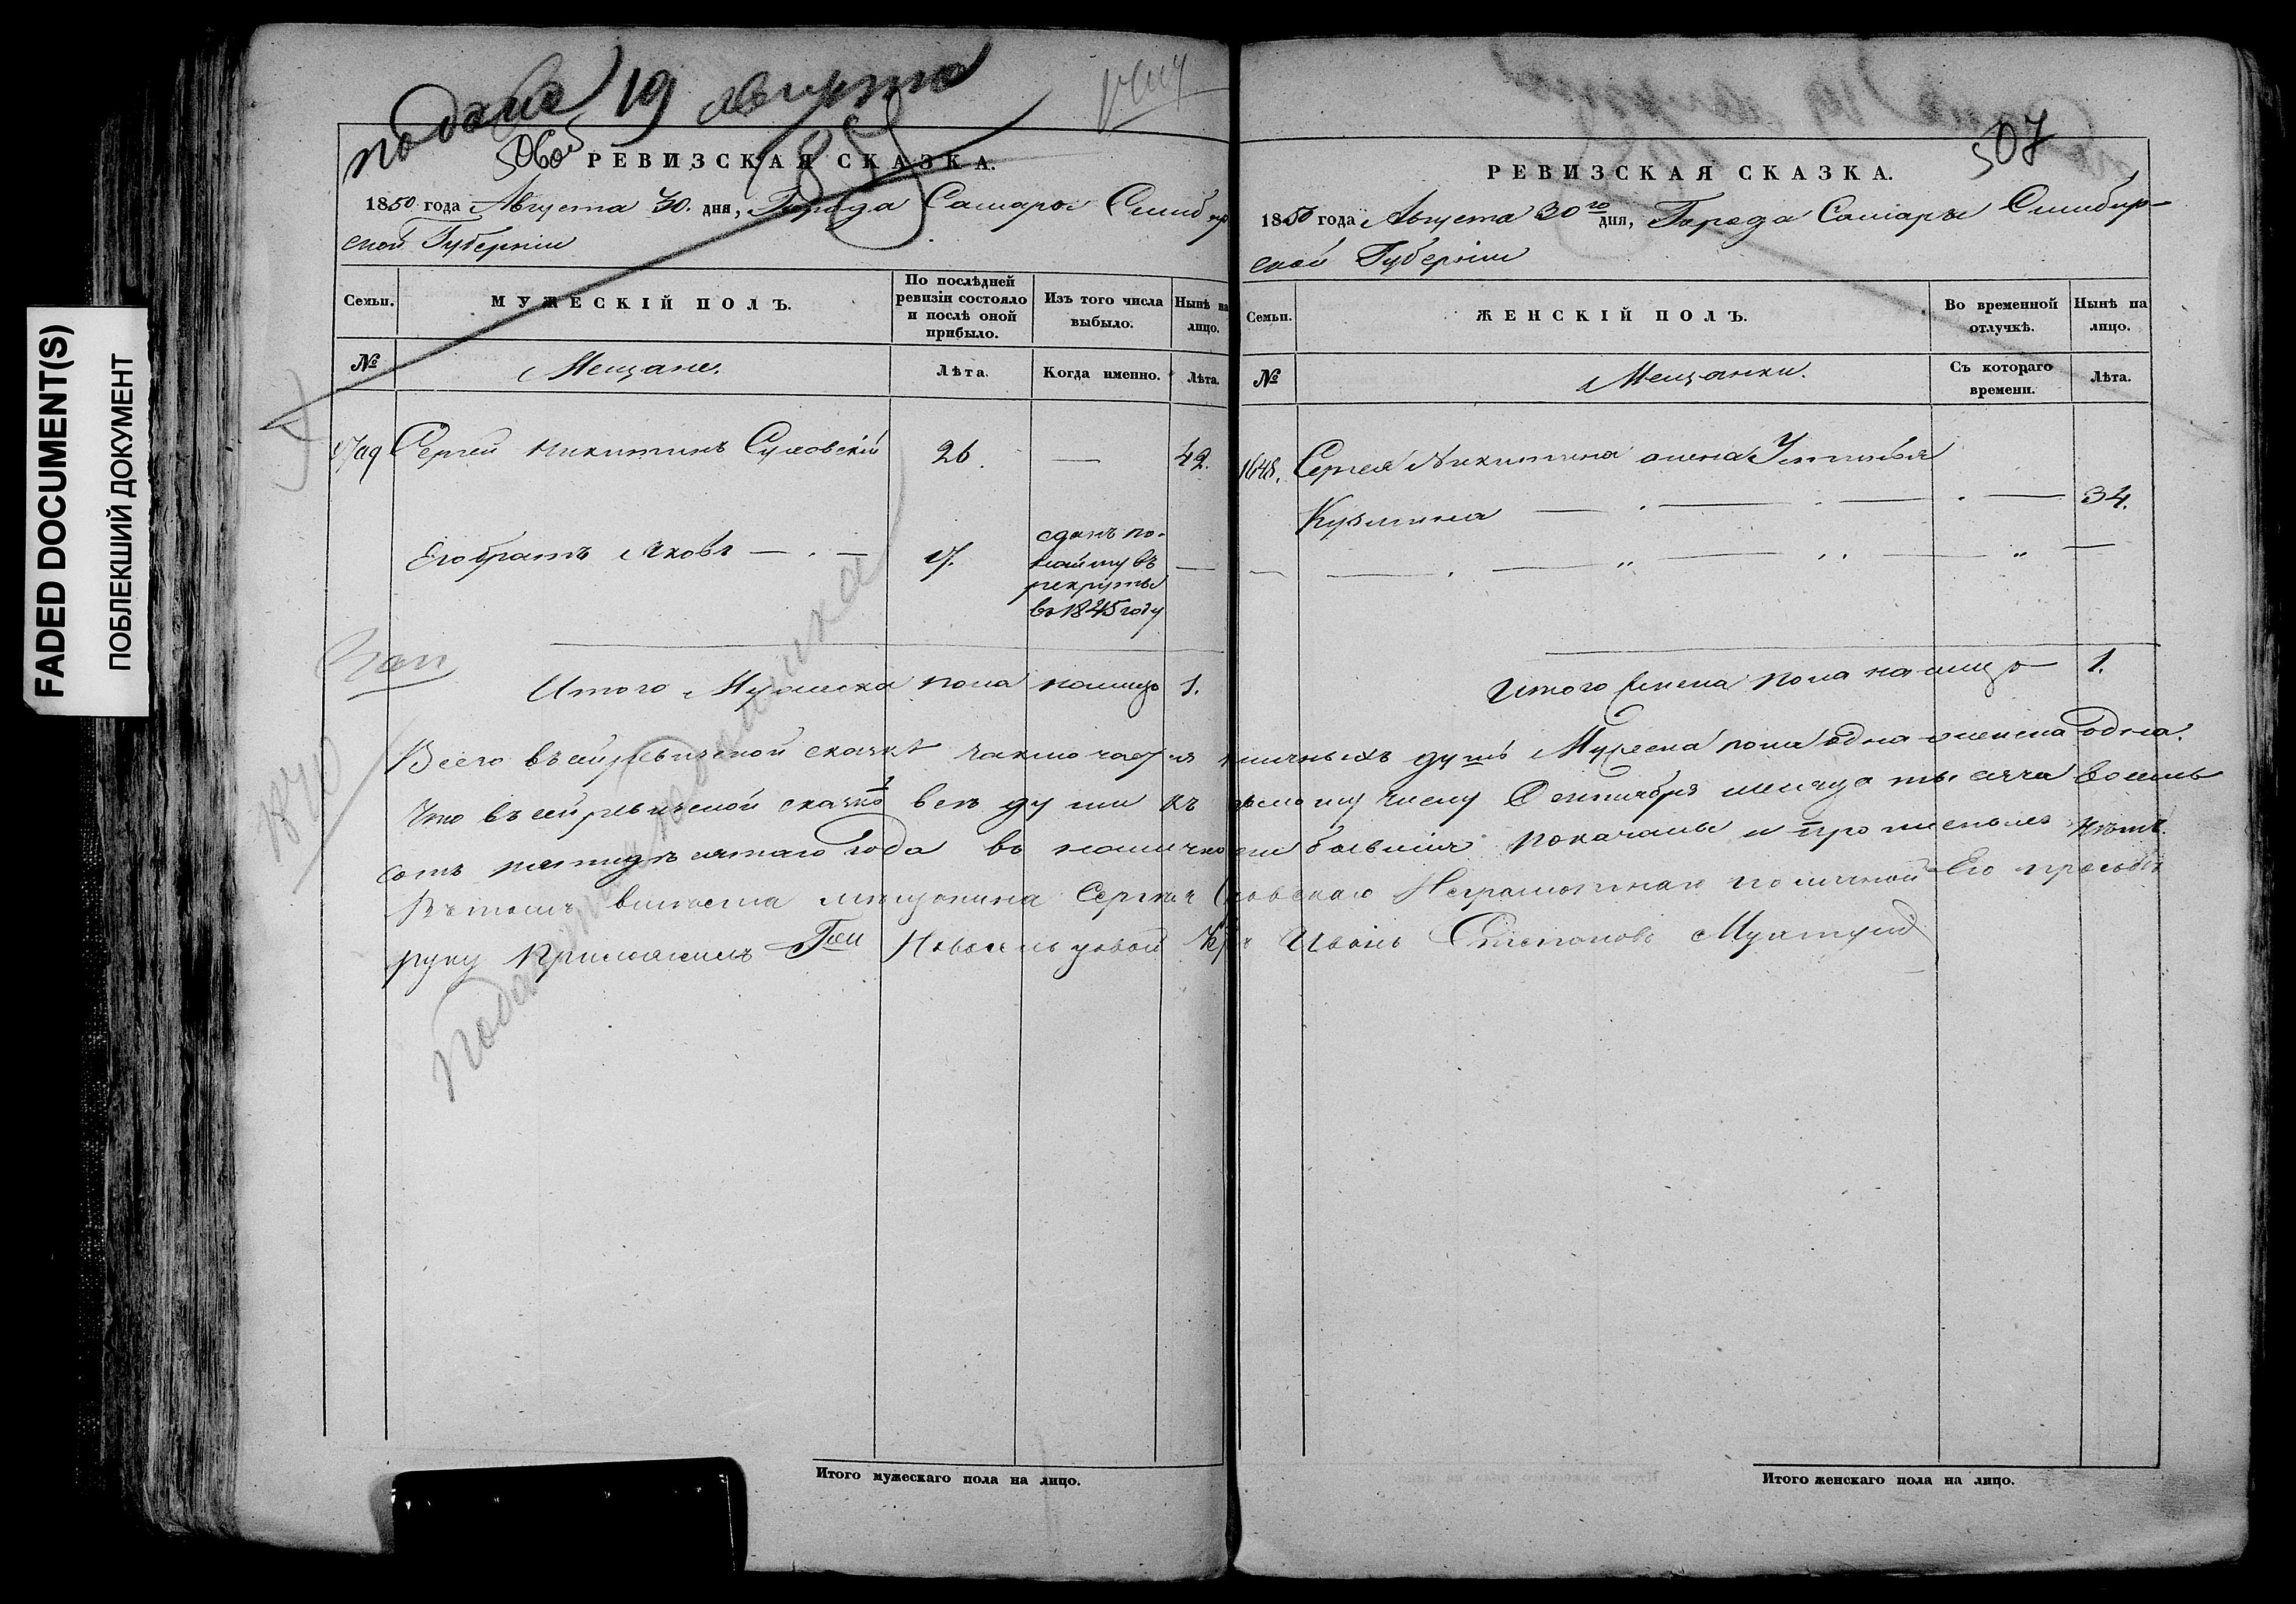 FADED DOCUMENT(S)
ПОБЛЕКШИЙ ДОКУМЕНТ
подана 19 августа
506об
РЕВИЗСКАЯ СКАЗКА.
1850 года Августа 30. дня, Города Самары Симбир
ской Губернiи
Семьи.
МУЖЕСКIЙ ПОЛЪ.
По послѣдней ревизiи состояло и послѣ оной прибыло.
Изъ того числа выбыло.
Нынѣ на лицо.
№
Мещане.
Лѣта.
Когда именно.
Лѣта.
Сергей Никитинъ
26.
—
42.
Его братъ Яковъ
17.
сданъ по
найму въ
рекруты
въ 1845 году
—
Итого Мужеска пола налицо 1.
1870
Итого мужескаго пола на лицо.
507
РЕВИЗСКАЯ СКАЗКА.
1850 года Августа 30го дня, Города Самары Симбир-
ской Губернiи
Семьи.
ЖЕНСКIЙ ПОЛЪ.
Во временной отлучкѣ.
Нынѣ на лицо.
№
Мещанки.
Съ котораго времени.
Лѣта.
1648.
Сергея Никитина жена Устинья
Кузмина
34.
Итого женска пола налицо 1.
Всего въ сей ревизской сказкѣ наличныхъ душъ Мужеска пола одна женска одна.
Что въ сей ревизской сказкѣ всѣ души къ числу Сентября месяца тысяча восемь
сотъ пятидесятаго года въ наличности бывшiя показаны и нѣтъ.
Въ томъ вместо мещанина Сергея неграмотнаго по личной Его прозьбѣ
руку приложилъ Иванъ Степановъ
Итого женскаго пола на лицо.